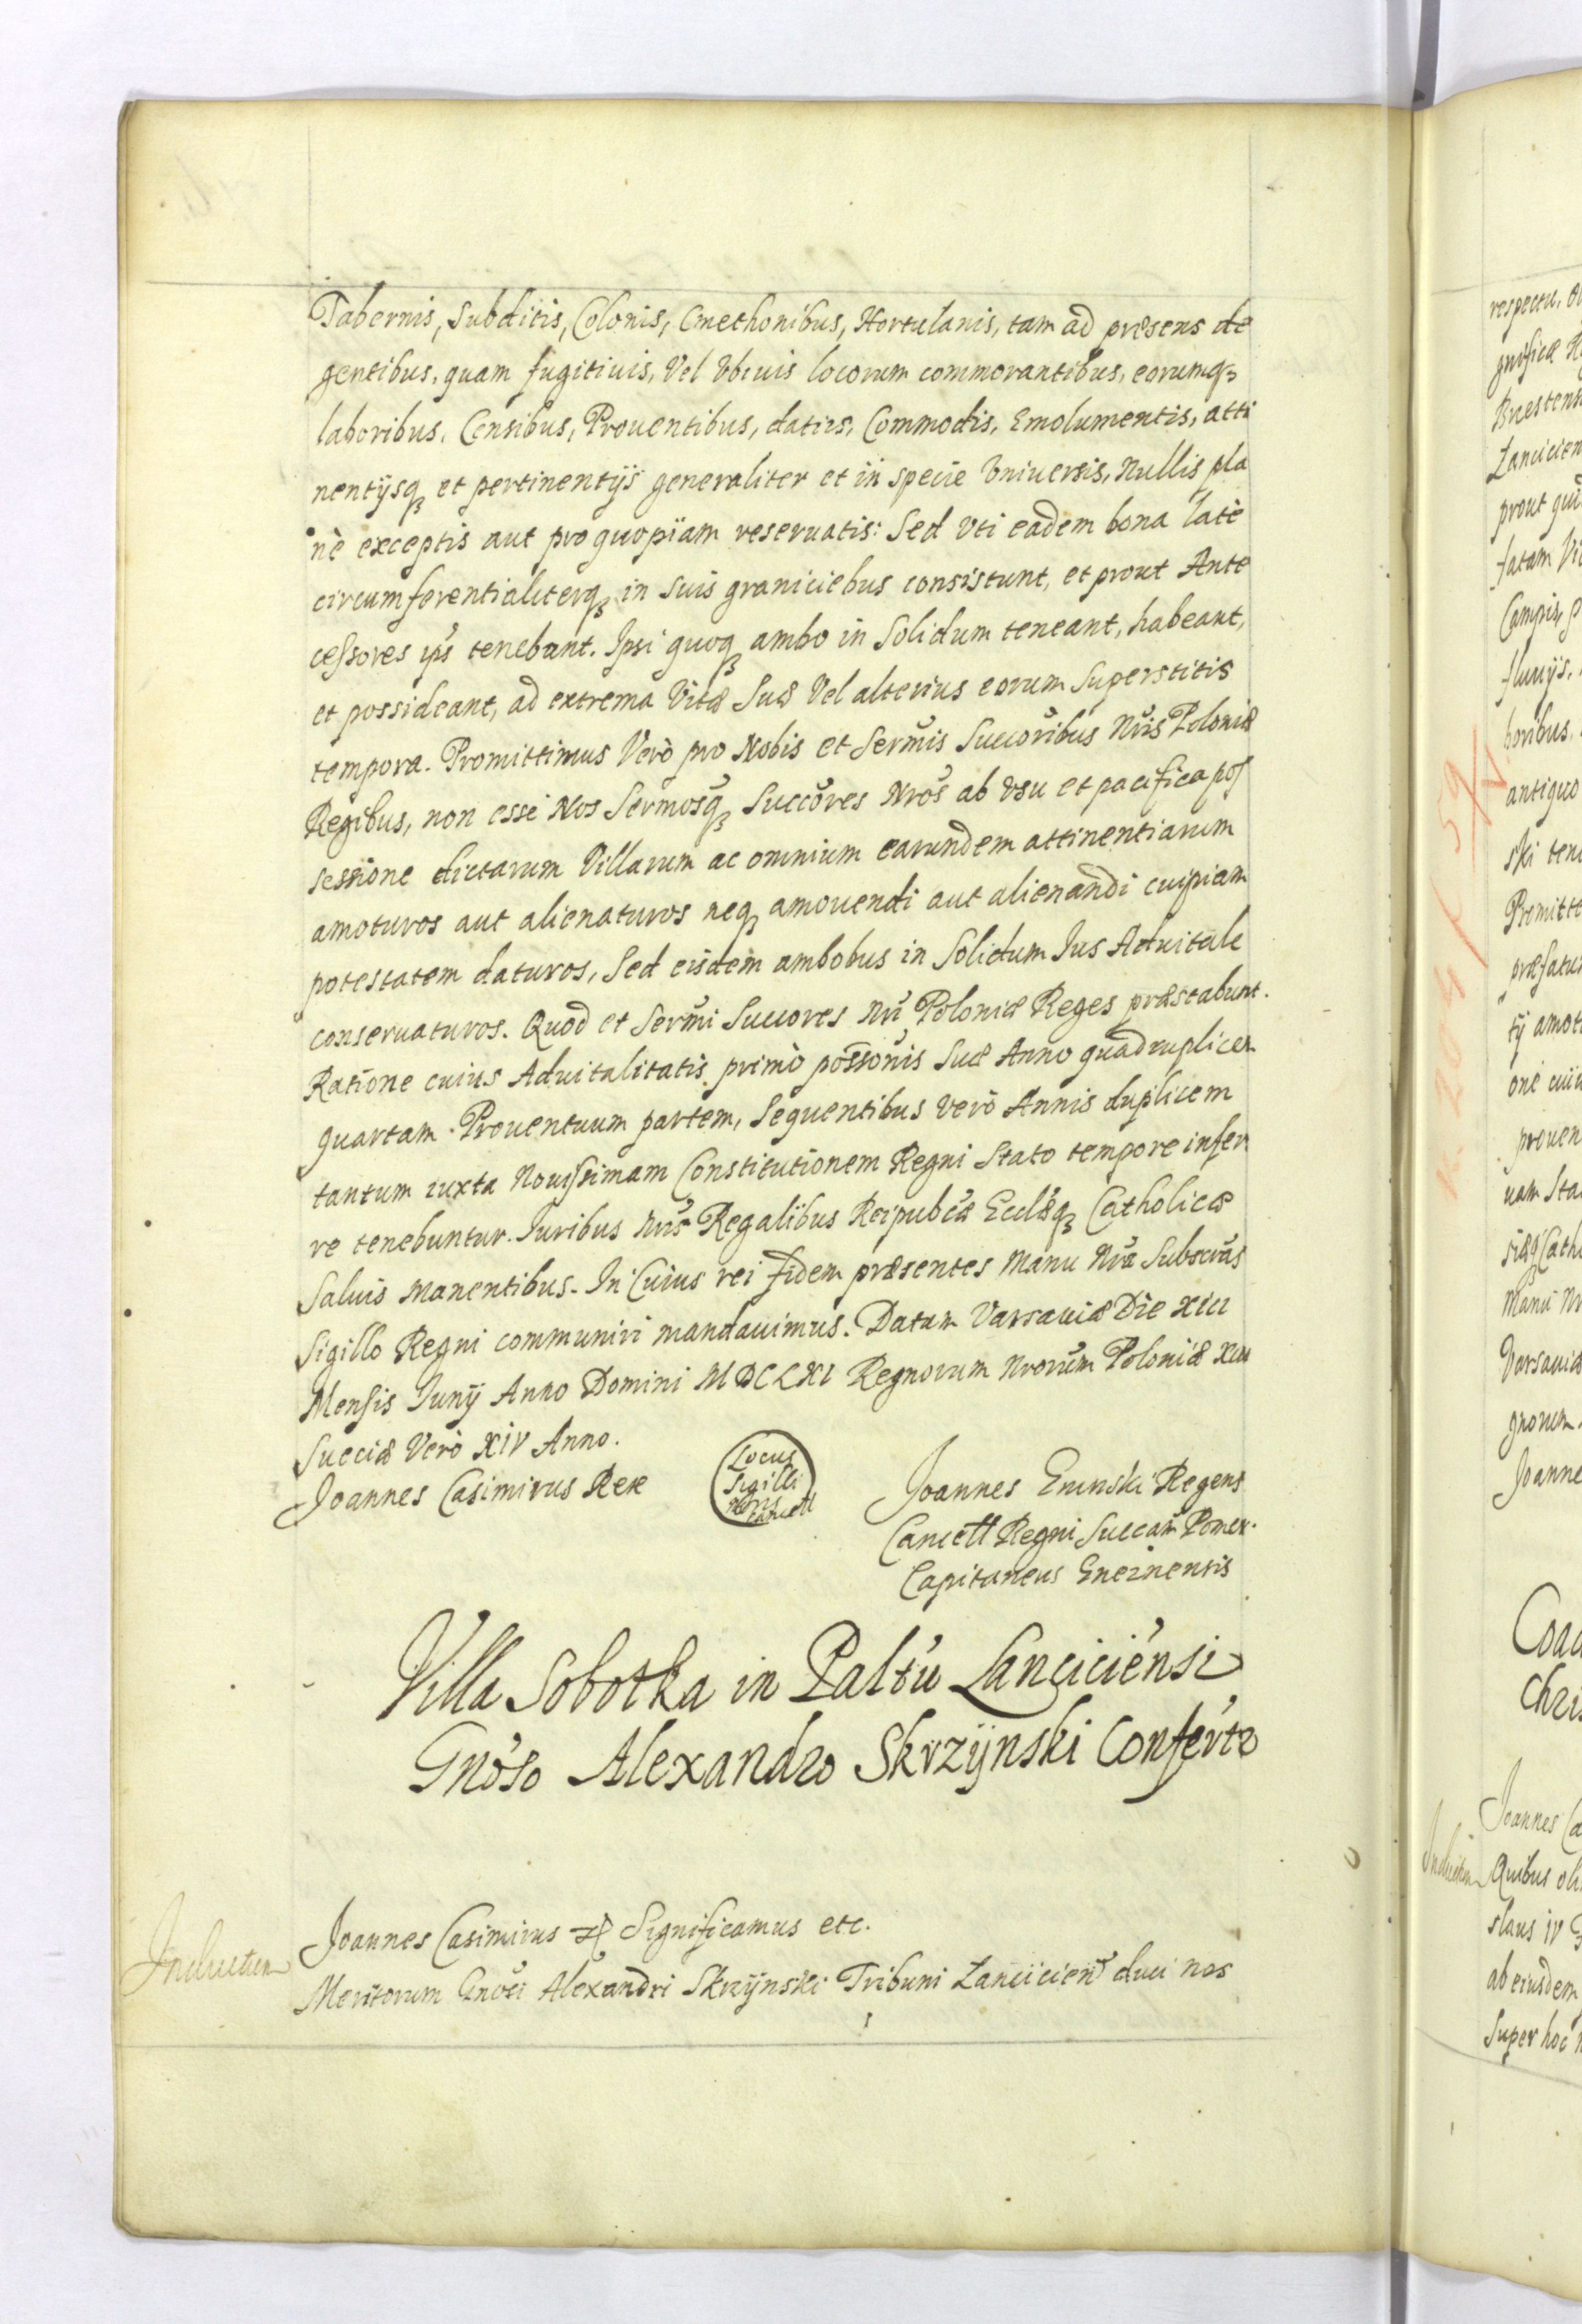 Tabernis, Subditis, Colonis, Cmethonibus, Hortulanis, tam ad præsens de
gentibus, quam fugitiuis, Vel Vbiuis locorum commorantibus, eorumqꝫ
laboribus, Censibus, Prouentibus, datiis, Commodis, Emolumentis, atti
nentijsqꝫ et pertinentijs generaliter et in specie Vniuersis, Nullis pla
nè exceptis aut pro quopiam reseruatis: Sed Vti eadem bona latè
circumferentialiterqꝫ in suis graniciebus consistunt, et prout Ante
cessores ip̃s tenebant. Ipsi quoqꝫ ambo in Solidum teneant, habeant,
et possideant, ad extrema Vitæ Suæ Vel alterius eorum Superstitis
tempora. Promittimus Verò pro Nobis et Serm̃is Succoribus Nr̃is Poloniæ
Regibus, non esse Nos Sermosqꝫ Succores Nr̃os ab Vsu et pacifica pos
sessione dictarum Villarum ac omnium earundem attinentiarum
amoturos aut alienaturos neqꝫ amouendi aut alienandi cuipiam
potestatem daturos, Sed eisdem ambobus in Solidum Ius Aduitale
conseruaturos. Quod et Serm̃i Succores Nr̃i Poloniæ Reges præstabunt.
Ratione cuius Aduitalitatis primò possonis Suæ Anno quadruplicem
quartam Prouentuum partem, Sequentibus Verò Annis duplicem
tantum iuxta Nouissimam Constitutionem Regni Stato tempore infer
re tenebuntur. Iuribus Nr̃is Regalibus Reipubcæ Ecclæqꝫ Catholicæ
Saluis manentibus. In Cuius rei fidem præsentes Manu Nr̃a Subscras
Sigillo Regni communiri mandauimus. Datum Varsauiæ Die XIII
Mensis Iunij Anno Domini MDCLXI Regnorum Nrorum Poloniæ XIII
Sueciæ Verò XIV Anno.
Joannes Casimirus Rex
Locus
Sigilli
Mris
Cancell
Joannes Gninski Regens
Cancell Regni Succam Pomer.
Capitaneus Gneznensis
Villa Sobotka in Paltu Lanciciensi
Gnoso Alexandro Skrzynski Confertr
Inductum
Joannes Casimirus Significamus etc.
Meritorum Gnosi Alexandri Skrzynski Tribuni Lanciciens duci nos
respectu,
gnificæ
Brestens
Lancicien
prout
fatam
Campis,
fluuijs,
boribus,
antiquo
ski
Promitt
præfatu
amot
prouen
uam
Manu
Varsauiæ
gnorum
Joanne
Coad
Chri
Inductum
Joannes Ca
Quibus
slaus IV
ab eiusdem
Super hoc